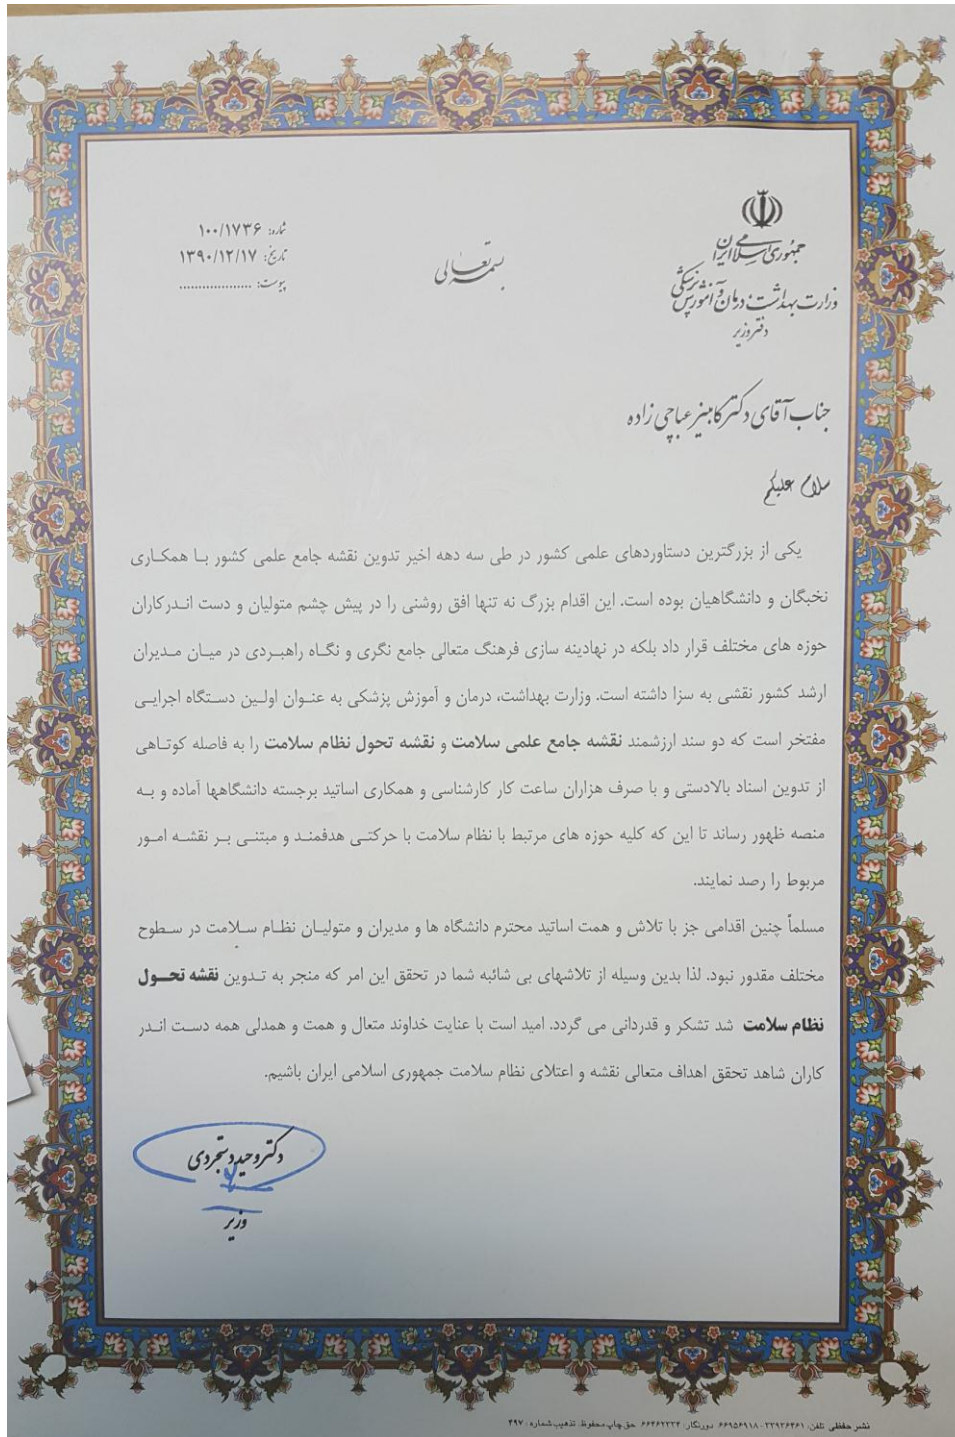 شماره: ۱۰۰/۱۷۳۶
تاریخ: ۱۳۹۰/۱۲/۱۷
پیوست: ...................
بسمه تعالی
جمهوری اسلامی ایران
وزارت بهداشت، درمان و آموزش پزشکی
دفتر وزیر
جناب آقای دکتر کامبیز عباچی زاده
سلام علیکم
یکی از بزرگترین دستاوردهای علمی کشور در طی سه دهه اخیر تدوین نقشه جامع علمی کشور بـا همکـاری
نخبگان و دانشگاهیان بوده است. این اقدام بزرگ نه تنها افق روشنی را در پیش چشم متولیان و دست انـدرکاران
حوزه های مختلف قرار داد بلکه در نهادینه سازی فرهنگ متعالی جامع نگری و نگـاه راهبـردی در میـان مـدیران
ارشد کشور نقشی به سزا داشته است. وزارت بهداشت، درمان و آموزش پزشکی به عنـوان اولـین دسـتگاه اجرایـی
مفتخر است که دو سند ارزشمند نقشه جامع علمی سلامت و نقشه تحول نظام سلامت را به فاصله کوتـاهی
از تدوین اسناد بالادستی و با صرف هزاران ساعت کار کارشناسی و همکاری اساتید برجسته دانشگاهها آماده و بـه
منصه ظهور رساند تا این که کلیه حوزه های مرتبط با نظام سلامت با حرکتـی هدفمنـد و مبتنـی بـر نقشـه امـور
مربوط را رصد نمایند.
مسلماً چنین اقدامی جز با تلاش و همت اساتید محترم دانشگاه ها و مدیران و متولیـان نظـام سـلامت در سـطوح
مختلف مقدور نبود. لذا بدین وسیله از تلاشهای بی شائبه شما در تحقق این امر که منجر به تـدوین نقشه تحــول
نظام سلامت شد تشکر و قدردانی می گردد. امید است با عنایت خداوند متعال و همت و همدلی همه دسـت انـدر
کاران شاهد تحقق اهداف متعالی نقشه و اعتلای نظام سلامت جمهوری اسلامی ایران باشیم.
دکتر وحید دستجردی
وزیر
نشر حفظی تلفن: ۳۳۹۳۶۴۶۱ - ۶۶۹۵۶۹۱۸ دورنگار: ۶۶۴۶۲۲۳۴ حق چاپ محفوظ. تذهیب شماره: ۴۹۷